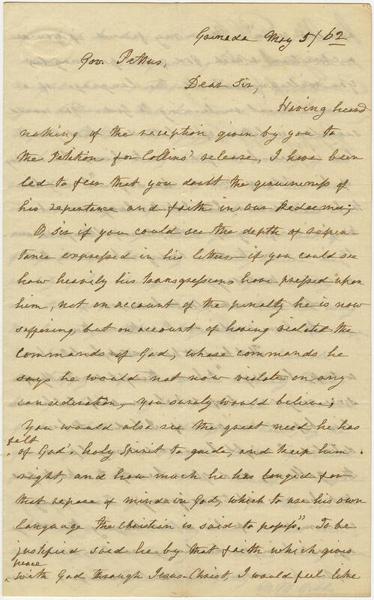 Grenada May 5/62
Gov. Pettus,
Dear Sir,
Having heard
nothing of the reception given by you to
the Petition for Collins' release, I have been
led to fear that you doubt the genuineness of
his repentance and faith in our Redeemer;
O, Sir if you could see the depth of repen-
tance expressed in his letters, if you could see
how heavily his transgressions have pressed upon
him, not on account of the penalty he is now
suffering but on account of having violated the
commands of God, whose commands he
says he would not now violate on any
consideration, you surely would believe;
You would also see the great need he has
felt
of God's holy Spirit to guide, and keep him
right, and how much he has longed for
that repose of mind in God, which to use his own
language "the Christian is said to possess". To be
justified said he by that faith which gives
peace
with God through Jesus Christ, I would feel like